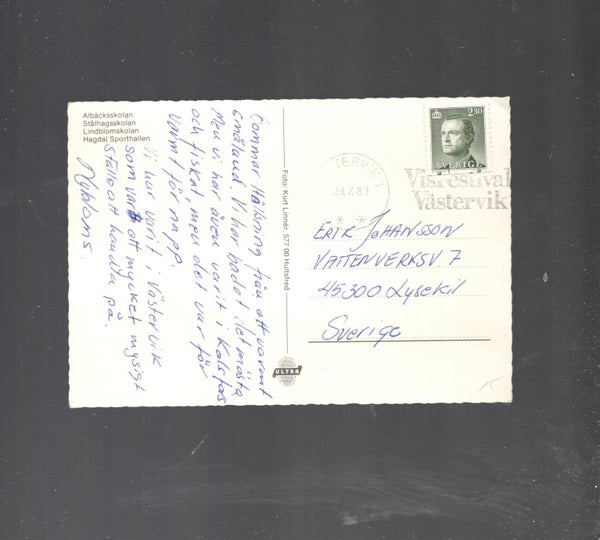 Albäcksskolan
Stålhagsskolan
Lindblomskolan
Hagdal Sporthallen
Sommar Hälsning från ett varmt
Småland. Vi har badat det mesta
Men vi har även varit i
och fiskat, men det var för
varmt för napp.
Vi har varit i Västervik
som var ett mycket mysigt
ställe att handla på.
Nybloms.
Foto: Kurt Linnér, 577 00 Hultsfred
ULTRA
TERVIK 1
28.7.89
Visfestival
Västervik
2.30
SVERIGE
ERIK JOHANSSON
VATTENVERKSV 7
45300 Lysekil
Sverige
15